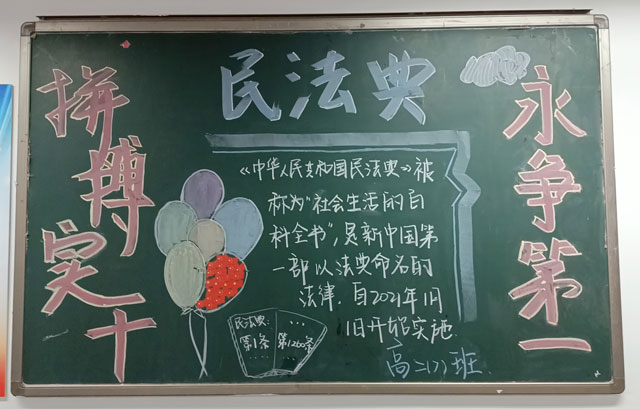 拼搏实十
民法典
永争第一
《中华人民共和国民法典》被
称为“社会生活的百
科全书”,是新中国第
一部以法典命名的
法律.自2021年1月
1日开始实施.
民法典:
第1条
...
...
第1260条
...
高二(7)班